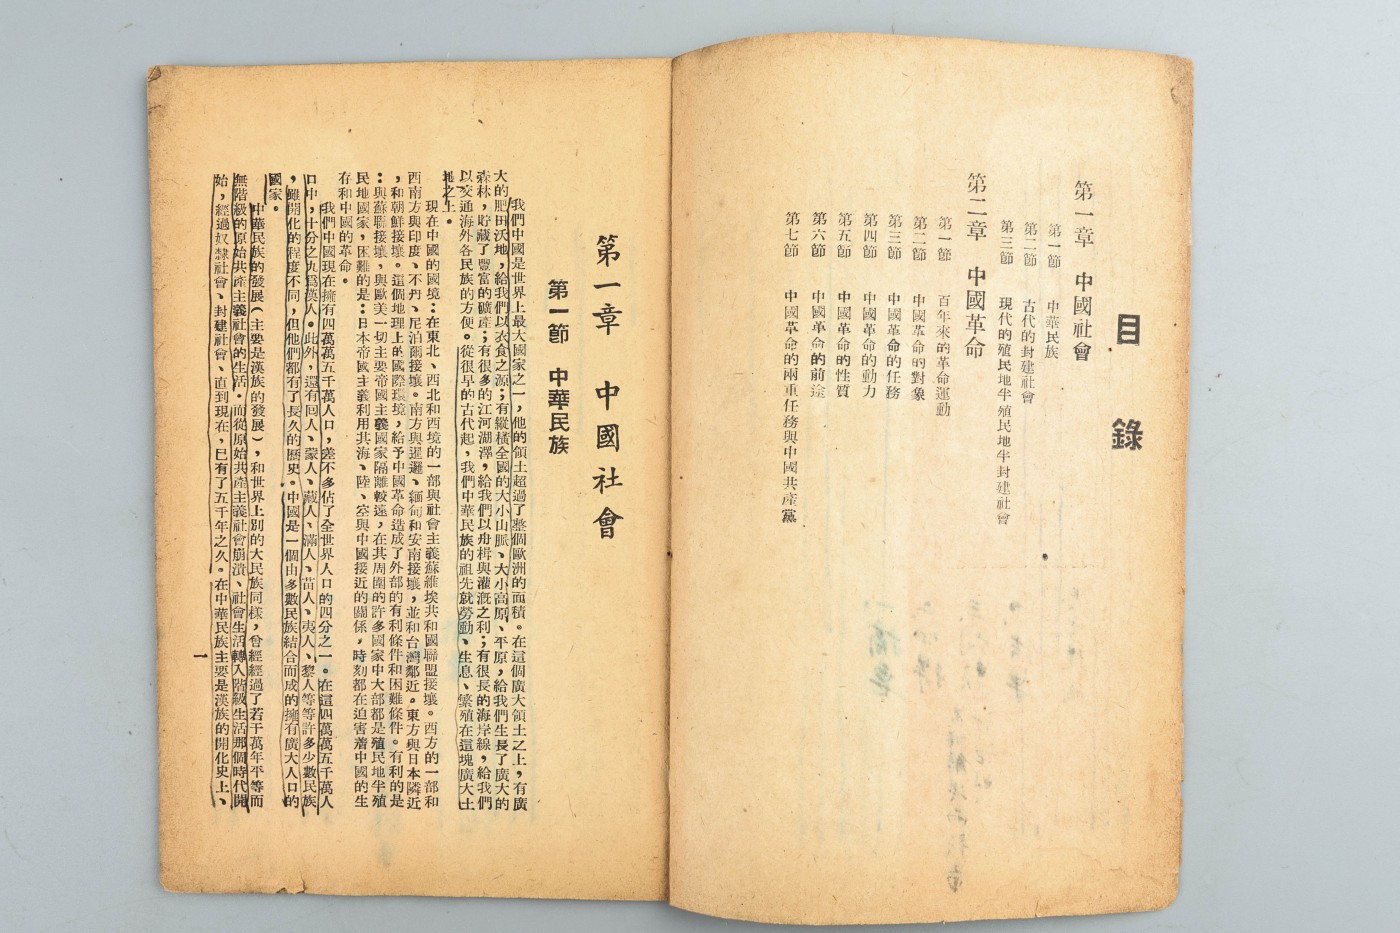 目錄
第一章 中國社會
第一節 中華民族
第二節 古代的封建社會
第三節 現代的殖民地半殖民地半封建社會
第二章 中國革命
第一節 百年來的革命運動
第二節 中國革命的對象
第三節 中國革命的任務
第四節 中國革命的動力
第五節 中國革命的性質
第六節 中國革命的前途
第七節 中國革命的兩重任務與中國共產黨
第一章 中國社會
第一節 中華民族
我們中國是世界上最大國家之一,他的領土超過了整個歐洲的面積。在這個廣大領土之上,有廣
大的肥田沃地,給我們以衣食之源;有縱橫全國的大小山脈、大小高原、平原,給我們生長了廣大的
森林,貯藏了豐富的礦產;有很多的江河湖澤,給我們以舟楫與灌漑之利;有很長的海岸線,給我們
以交通海外各民族的方便。從很早的古代起,我們中華民族的祖先就勞動、生息、繁殖在這塊廣大土
地之上。
現在中國的國境:在東北、西北和西境的一部與社會主義蘇維埃共和國聯盟接壤。西方的一部和
西南方與印度、不丹、尼泊爾接壤。南方與暹邏、緬甸和安南接壤,並和台灣鄰近。東方與日本隣近
,和朝鮮接壤。這個地理上的國際環境,給予中國革命造成了外部的有利條件和困難條件。有利的是
:與蘇聯接壤,與歐美一切主要帝國主義國家隔離較遠,在其周圍的許多國家中大部都是殖民地半殖
民地國家,困難的是:日本帝國主義利用共海、陸、空與中國接近的關係,時刻都在迫害着中國的生
存和中國的革命。
我們中國現在擁有四萬萬五千萬人口,差不多佔了全世界人口的四分之一。在這四萬萬五千萬人
口中,十分之九爲漢人。此外,還有回人、蒙人、藏人、滿人、苗人、夷人、黎人等等許多少數民族
,雖開化的程度不同,但他們都有了長久的歷史。中國是一個由多數民族結合而成的擁有廣大人口的
國家。
中華民族的發展(主要是漢族的發展),和世界上別的大民族同樣,曾經經過了若干萬年平等而
無階級的原始共產主義社會的生活。而從原始共產主義社會崩潰、社會生活轉入階級生活那個時代開
始,經過奴隸社會、封建社會、直到現在,已有了五千年之久。在中華民族主要是漢族的開化史上、
一